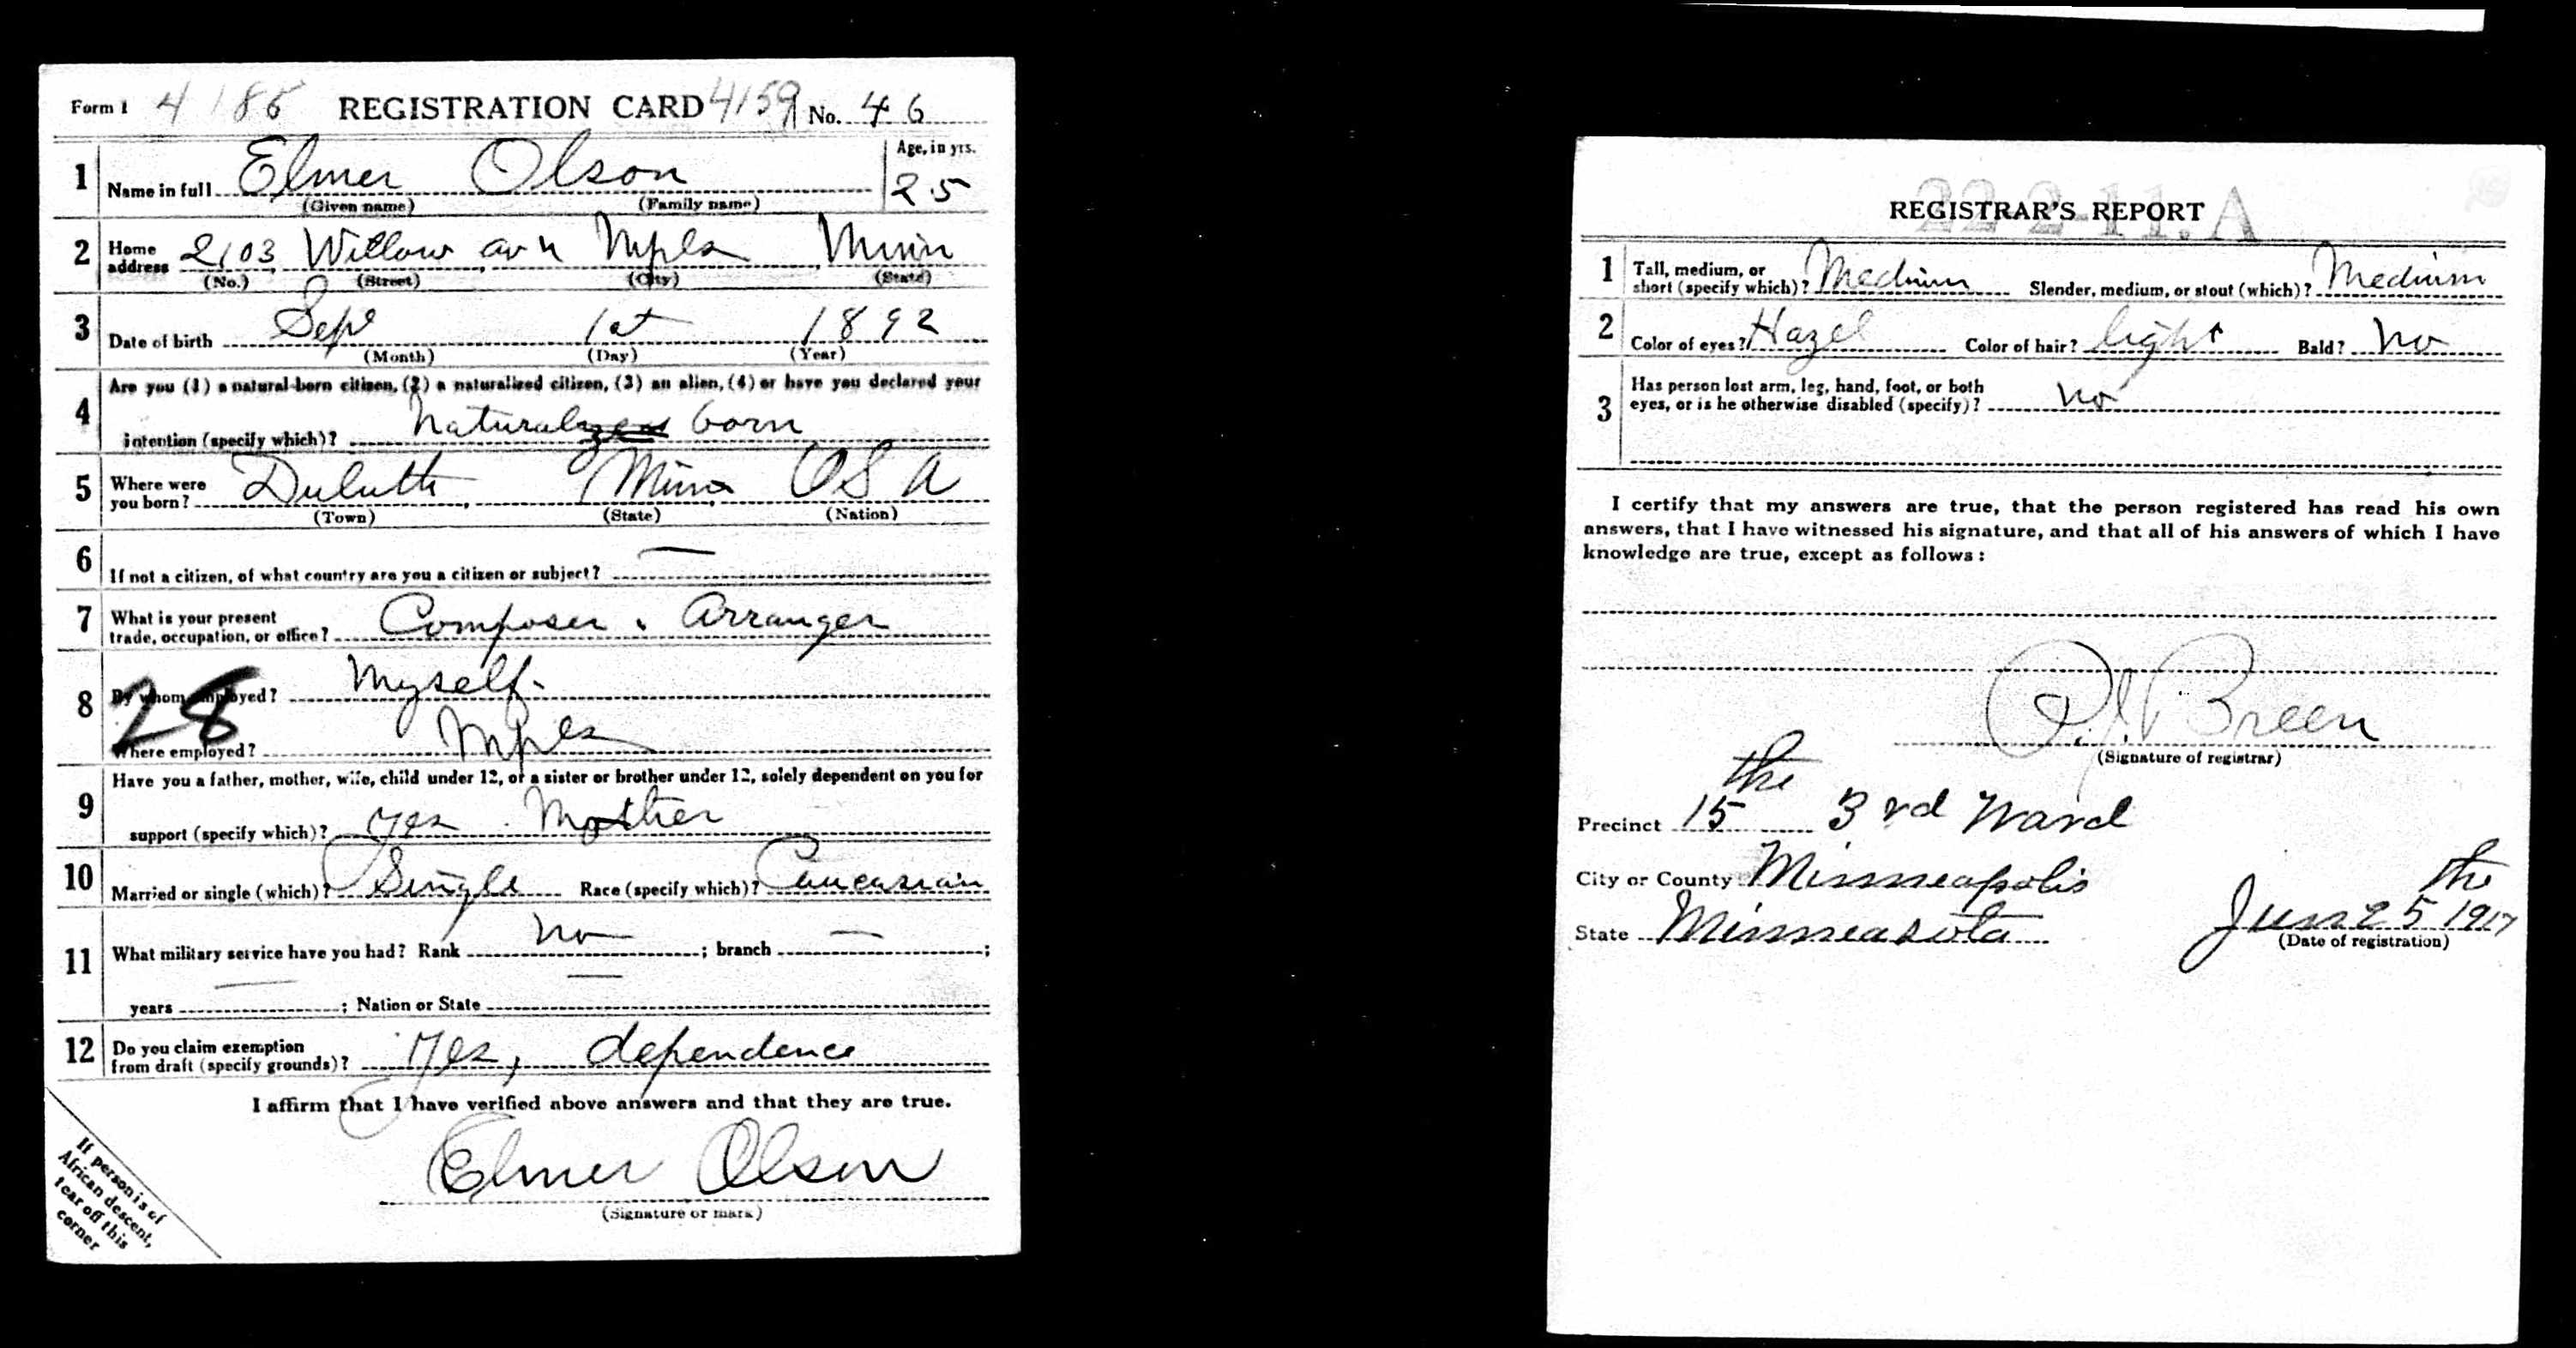 Form 1 4185 REGISTRATION CARD 4159 No. 46
1 Name in full Elmer Olson Age, in yrs. 25
(Given name) (Family name)
2 Home address 2103 Willow av n Mpls Minn
(No.) (Street) (City) (State)
3 Date of birth Sep 1st 1892
(Month) (Day) (Year)
4 Are you (1) a natural-born citizen, (2) a naturalized citizen, (3) an alien, (4) or have you declared your
intention (specify which)? Natural born
5 Where were you born? Duluth Minn USA
(Town) (State) (Nation)
6 If not a citizen, of what country are you a citizen or subject? —
7 What is your present trade, occupation, or office? Composer. Arranger
8 By whom employed? Myself.
28
Where employed? Mpls
9 Have you a father, mother, wife, child under 12, or a sister or brother under 12, solely dependent on you for
support (specify which)? Yes. Mother
10 Married or single (which)? Single Race (specify which)? Caucasian
11 What military service have you had? Rank no ; branch — ;
years — ; Nation or State —
12 Do you claim exemption from draft (specify grounds)? Yes, dependence
I affirm that I have verified above answers and that they are true.
Elmer Olson
(Signature or mark)
If person is of
African descent,
tear off this
corner
22-2-11. A
REGISTRAR'S REPORT
1 Tall, medium, or short (specify which)? Medium Slender, medium, or stout (which)? Medium
2 Color of eyes? Hazel Color of hair? light Bald? No
3 Has person lost arm, leg, hand, foot, or both
eyes, or is he otherwise disabled (specify)? no
I certify that my answers are true, that the person registered has read his own
answers, that I have witnessed his signature, and that all of his answers of which I have
knowledge are true, except as follows:
P.J. Breen
(Signature of registrar)
Precinct 15 the 3rd Ward
City or County Minneapolis
State Minneasota June 5 the 1917
(Date of registration)